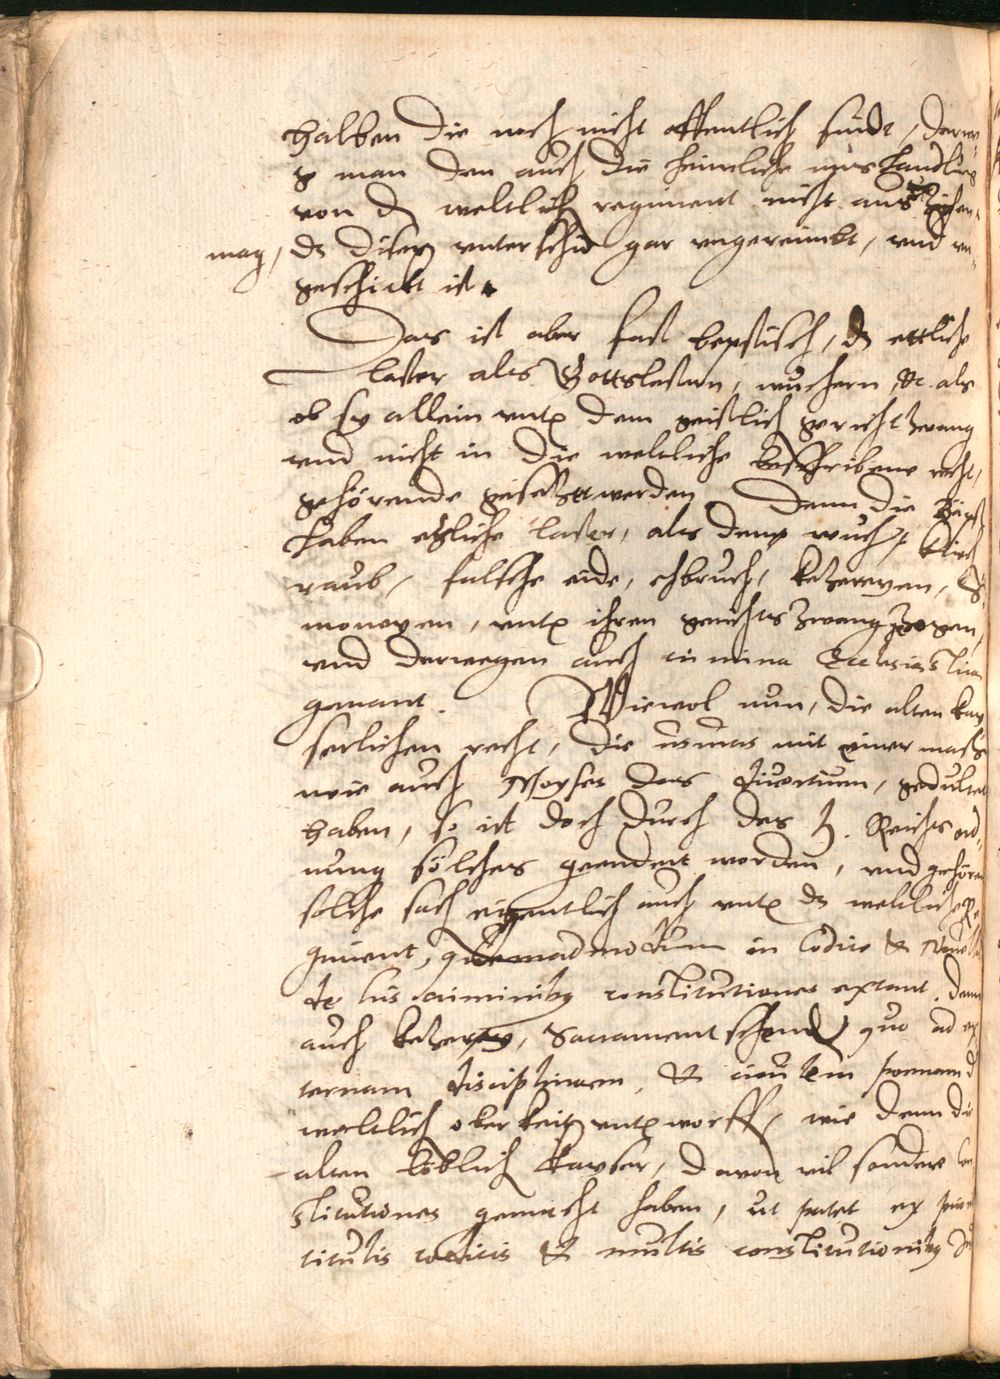 halben die noch nicht offentlich sindt, derwe-
g man den auch die heimeliche misshandlung
von dz weltlich regiment nicht ausziehen
mag, dz diser vnterschid gar vngereimbt, vnd vn-
geschickt ist.
Das ist aber fast bepstisch, dz ettliche
laster als Gottslestern, wuchern, &c. als
ob sy allein vnter dem geistlich gerichtzwang
vnd nicht in die weltliche beschribene recht,
gehörende gesetzt werden. Denn die Bäpst
haben etzliche laster, als den wucher, kirch
raub, falsche eide, ehbruch, ketzereyen, Si-
moneyen, vnter ihren gerichtszwang zogen,
vnd derwegen auch crimina Ecclesiastica
genant. Wiewol nun, die alten kay
serlichen recht, die usuras mit einer mass
wie auch Moyses das diuortium, gedultet
haben, so ist doch durch des h. Reichs ord-
nung sölches geendert worden, vnd gehören
solche sach eigentlich auch vnter dz weltlich Re
giment, quemadmodum in Codice & Nouellis
de his criminibus constitutiones extant. Denn
auch ketzerey, Sacrament schend quo ad ex
ternam disciplinam, & ciuilem poenam d
weltlich oberkeit vnterworffen, wie denn die
alten löblich Kayser, davon vil sondere con
stitutiones gemacht haben, ut patet ex
titulis codicis & multis constitutionibus